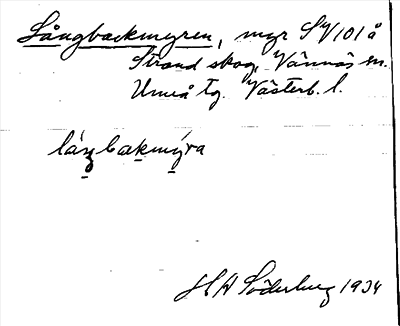 Långbackmyren, myr SV 101 å
Strand skog, Vännäs sn.
Umeå tg. Västerb. l.
långbakmýra
H A Söderberg 1934